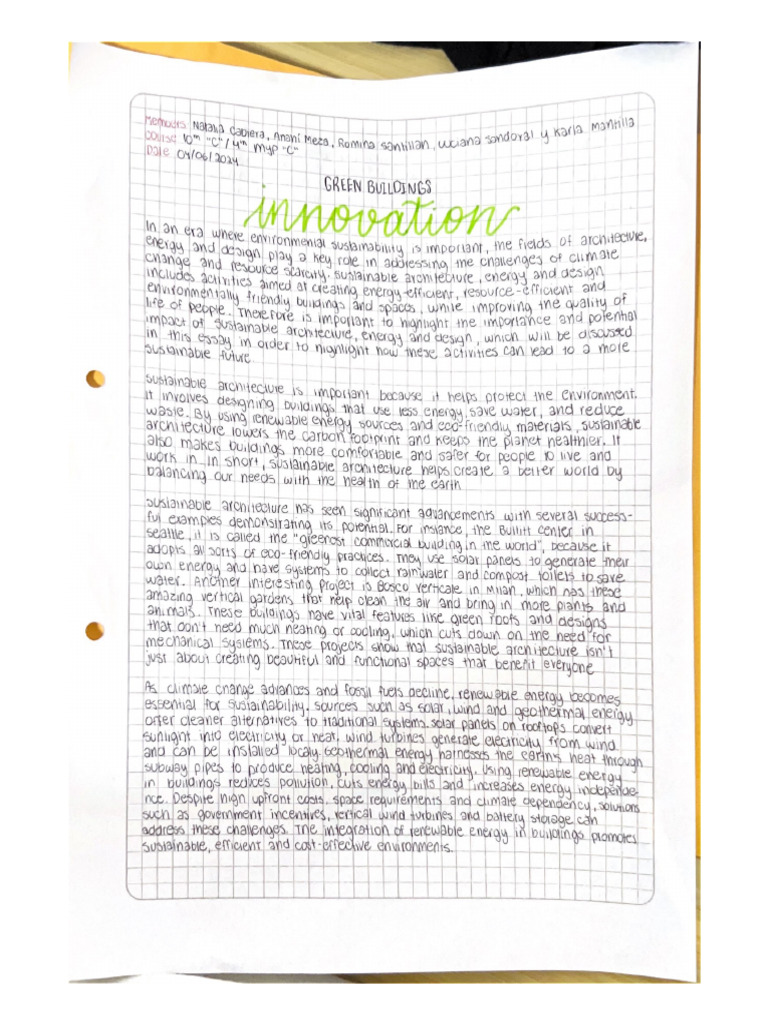 Members Natalia Cabrera, Anahí Meza, Romina Santillan, Luciana Sandoval y Karla Mantilla
Course 10th "C" / 4th MYP "C"
Date 04/06/2024
GREEN BUILDINGS
innovation
In an era where environmental sustainability is important, the fields of architecture,
energy and design play a key role in addressing the challenges of climate
change and resource scarcity. Sustainable architecture, energy and design
includes activities aimed at creating energy-efficient, resource-efficient and
environmentally friendly buildings and spaces, while improving the quality of
life of people. Therefore is important to highlight the importance and potential
impact of sustainable architecture, energy and design, which will be discussed
in this essay in order to highlight how these activities can lead to a more
sustainable future
Sustainable architecture is important because it helps protect the environment.
It involves designing buildings that use less energy, save water, and reduce
waste. By using renewable energy sources and eco-friendly materials, sustainable
architecture lowers the carbon footprint and keeps the planet healthier. It
also makes buildings more comfortable and safer for people to live and
work in in short, sustainable architecture helps create a better world by
balancing our needs with the health of the earth
Sustainable architecture has seen significant advancements with several success-
ful examples demonstrating its potential. For instance, the Bullitt Center in
Seattle, it is called the "greenost commercial building in the world", because it
adopts all sorts of eco-friendly practices. They use solar panels to generate their
own energy and have systems to collect rainwater and compost toilets to save
water. Another interesting project is Bosco Verticale in Milan, which has these
amazing vertical gardens that help clean the air and bring in more plants and
animals. These buildings have vital features like green roofs and designs
that don't need much heating or cooling, which cuts down on the need for
mechanical systems. These projects show that sustainable architecture isn't
just about creating beautiful and functional spaces that benefit everyone
As climate change advances and fossil fuels decline, renewable energy becomes
essential for sustainability. Sources such as solar, wind and geothermal energy
offer cleaner alternatives to traditional systems. Solar panels on rooftops convert
sunlight into electricity or heat, wind turbines generate electricity from wind
and can be installed localy. Geothermal energy harnesses the earth's heat through
subway pipes to produce heating, cooling and electricity. Using renewable energy
in buildings reduces pollution, cuts energy bills and increases energy independe-
nce. Despite high upfront costs, space requirements and climate dependency, solutions
such as government incentives, vertical wind turbines and battery storage can
address these challenges. The integration of renewable energy in buildings promotes
sustainable, efficient and cost-effective environments.